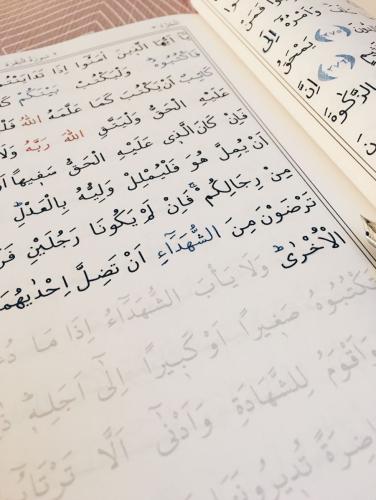 وَاَمْرُهُٓ اِلَى
﴿٢٧٥﴾ يَمْحَقُ
﴿٢٧٦﴾ اِنَّ
الزَّكٰوةَ
يَٓا اَيُّهَا الَّذ۪ينَ اٰمَنُٓوا اِذَا تَدَايَنْتُمْ
فَاكْتُبُوهُ وَلْيَكْتُبْ بَيْنَكُمْ
كَاتِبٌ اَنْ يَكْتُبَ كَمَا عَلَّمَهُ اللّٰهُ
عَلَيْهِ الْحَقُّ وَلْيَتَّقِ اللّٰهَ رَبَّهُ وَلَا
فَاِنْ كَانَ الَّذ۪ى عَلَيْهِ الْحَقُّ سَف۪يهًا
اَنْ يُمِلَّ هُوَ فَلْيُمْلِلْ وَلِيُّهُ بِالْعَدْلِ
مِنْ رِجَالِكُمْ فَاِنْ لَمْ يَكُونَا رَجُلَيْنِ
تَرْضَوْنَ مِنَ الشُّهَدَٓاءِ اَنْ تَضِلَّ اِحْدٰيهُمَا
الْاُخْرٰى وَلَا يَأْبَ الشُّهَدَٓاءُ اِذَا مَا
تَكْتُبُوهُ صَغ۪يرًا اَوْ كَب۪يرًا اِلٰٓى اَجَلِه۪
وَاَقْوَمُ لِلشَّهَادَةِ وَاَدْنٰٓى اَلَّا
حَاضِرَةً تُد۪يرُونَهَا